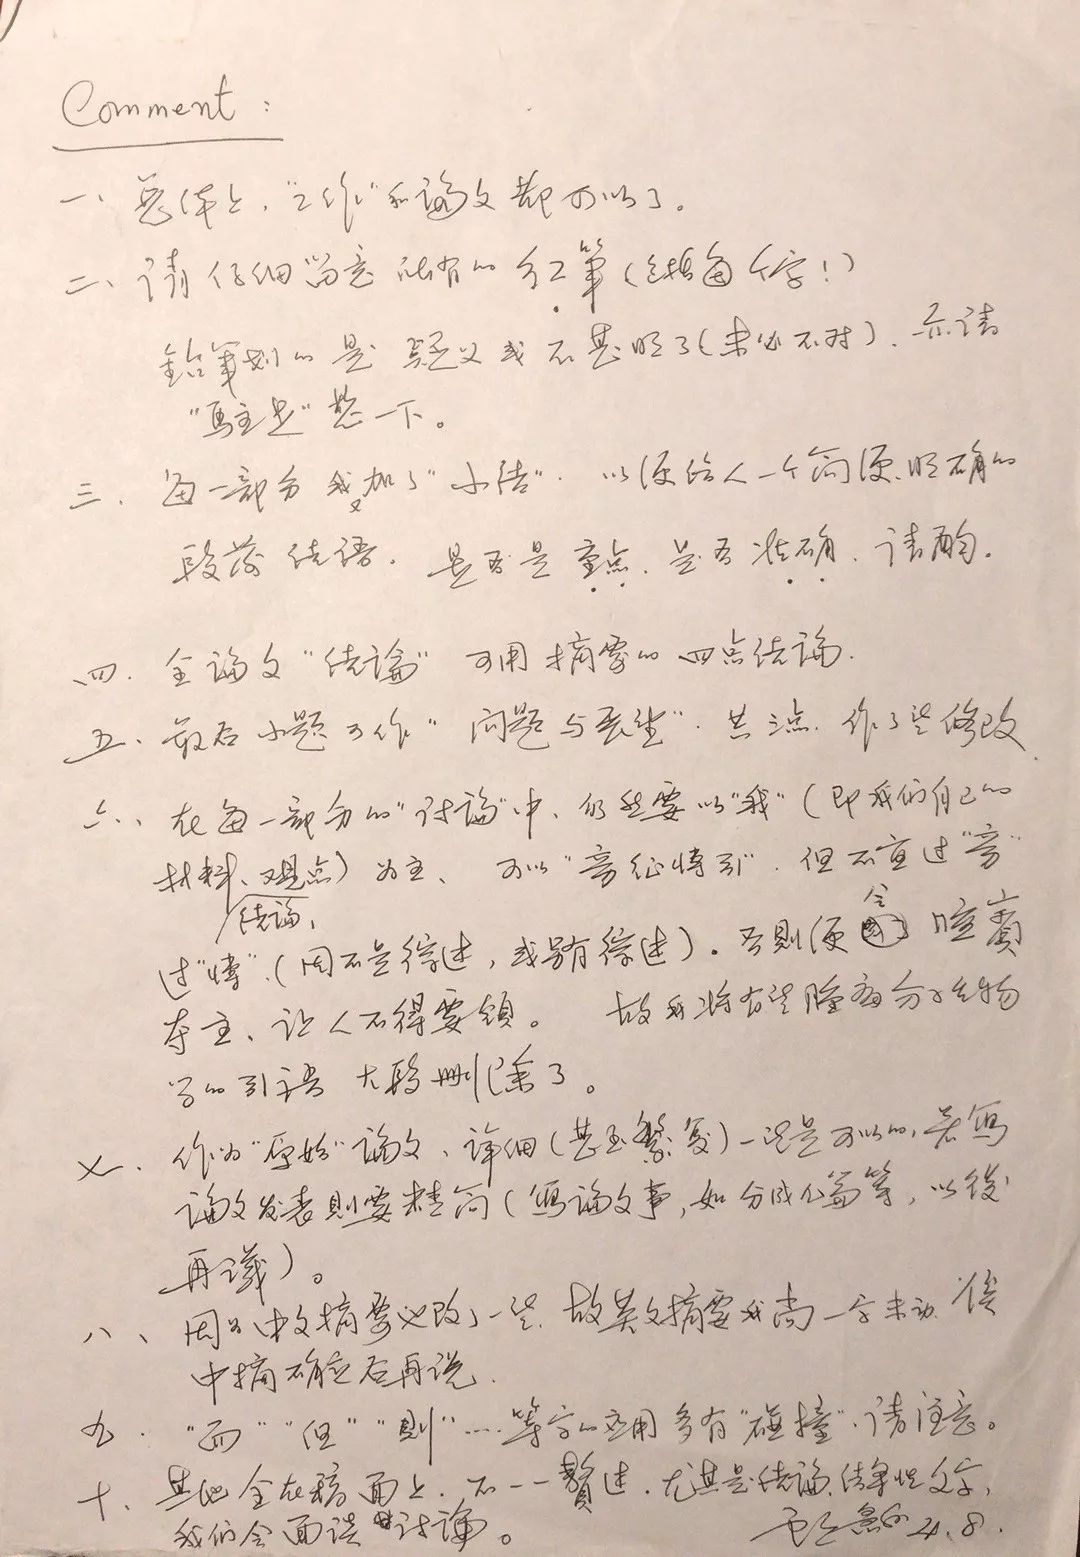 Comment:
一、总体上，"工作"和论文都可以了。
二、请仔细留意所有的红笔（包括每个字！）
铅笔划的是疑义或不甚明了（未必不对），亦请
"驻足"想一下。
三、每一部分我加了"小结"，以便给人一个简便、明确的
段落结语，是否是重点、是否准确，请酌。
四、全论文"结论"可用摘要的四点结论。
五、最后小题可作"问题与展望"，共三点，作了些修改
六、在每一部分的"讨论"中，仍然要以"我"（即我们自己的
材料、观点）为主、可以"旁征博引"，但不宜过"旁"
结论、
过"博"（因不是综述，或另有综述）。否則便会喧賓
夺主、让人不得要领。故我将有些肿瘤分子生物
学的引语大段删除了。
七、作为"原始"论文，详细（甚至繁复）一些是可以的，若写
論文发表則要精简（写论文事，如分成几篇等，以後
再議）。
八、因为中文摘要必改了一些，故英文摘要我尚一字未动，俟
中摘确定后再说。
九、"而""但""則"……等字的应用多有"碰撞"，请注意。
十、其他全在稿面上，不一一贅述，尤其是结论、结果性文字，
我们会面谈讨论。 4.8.